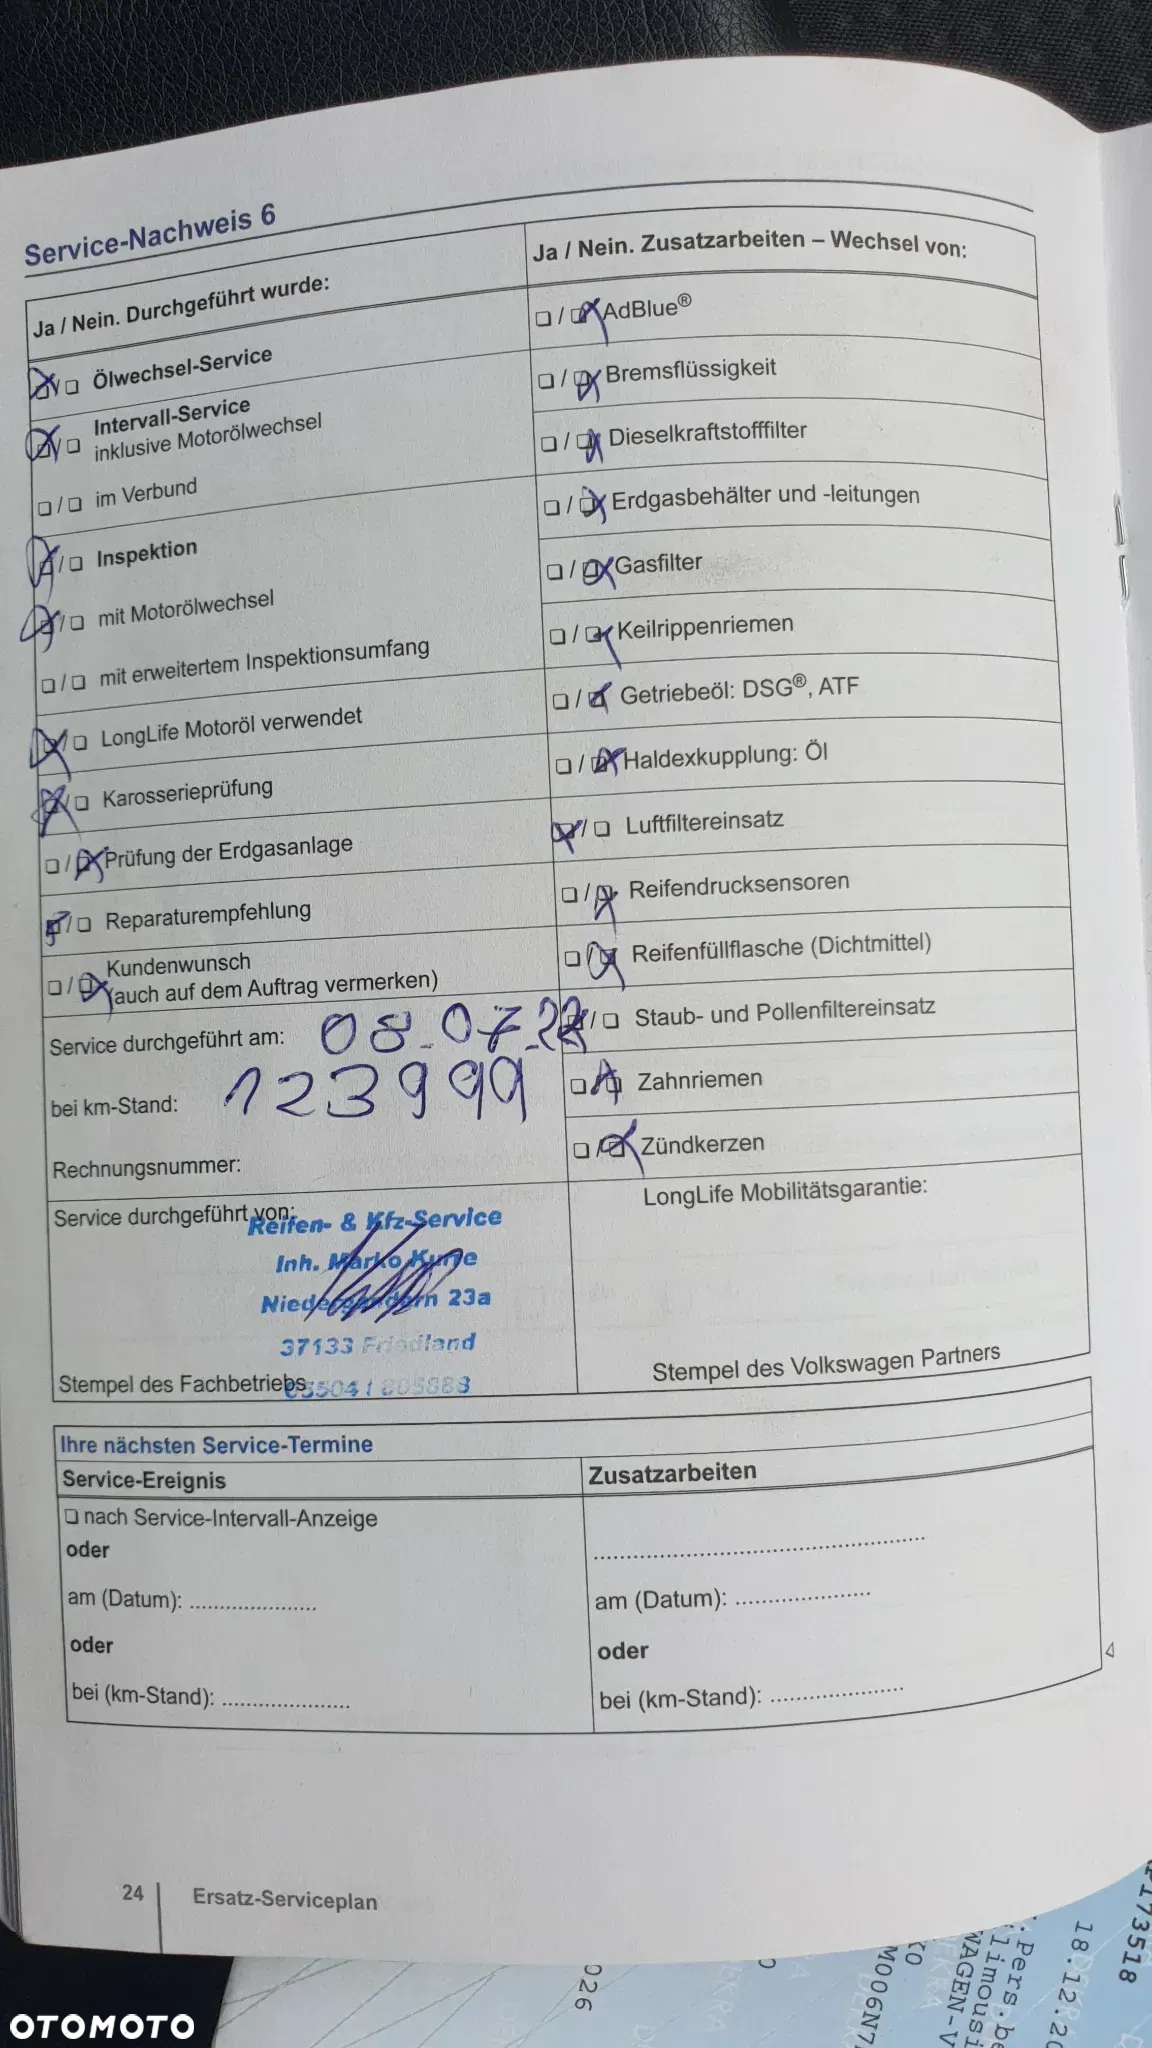 Service-Nachweis 6
Ja / Nein. Durchgeführt wurde:
Ölwechsel-Service
Intervall-Service
inklusive Motorölwechsel
im Verbund
Inspektion
mit Motorölwechsel
mit erweitertem Inspektionsumfang
LongLife Motoröl verwendet
Karosserieprüfung
Prüfung der Erdgasanlage
Reparaturempfehlung
Kundenwunsch
(auch auf dem Auftrag vermerken)
Service durchgeführt am: 08.07.22
bei km-Stand: 123999
Rechnungsnummer:
Service durchgeführt von:
Reifen- & Kfz-Service
Inh. Marko
23a
37133 Friedland
Stempel des Fachbetriebs
Ja / Nein. Zusatzarbeiten – Wechsel von:
AdBlue®
Bremsflüssigkeit
Dieselkraftstofffilter
Erdgasbehälter und -leitungen
Gasfilter
Keilrippenriemen
Getriebeöl: DSG®, ATF
Haldexkupplung: Öl
Luftfiltereinsatz
Reifendrucksensoren
Reifenfüllflasche (Dichtmittel)
Staub- und Pollenfiltereinsatz
Zahnriemen
Zündkerzen
LongLife Mobilitätsgarantie:
Stempel des Volkswagen Partners
Ihre nächsten Service-Termine
Service-Ereignis
nach Service-Intervall-Anzeige
oder
am (Datum): .....................
oder
bei (km-Stand): .....................
Zusatzarbeiten
.....................................................
am (Datum): .....................
oder
bei (km-Stand): .....................
24
Ersatz-Serviceplan
OTOMOTO
026
M006N7
WAGEN-V
limousi
: Pers.be
18.12.20
P173518